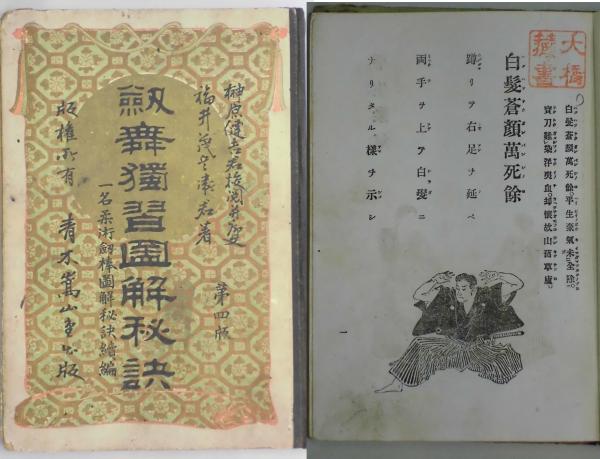 榊原健吉君校閲并
福井茂兵衛君著
第四版
劔舞獨習圖解秘訣
一名柔術劔棒圖解秘訣續編
版權所有 青木嵩山堂出版
大橋藏書
白髮蒼顔萬死餘平生豪氣未全除
寶刀難染洋夷血却懷故山舊草廬
白髮蒼顔萬死餘
蹲リヲ右足ヲ延ベ
両手ヲ上ア白髮ニ
ナリタル樣ヲ示シ
一